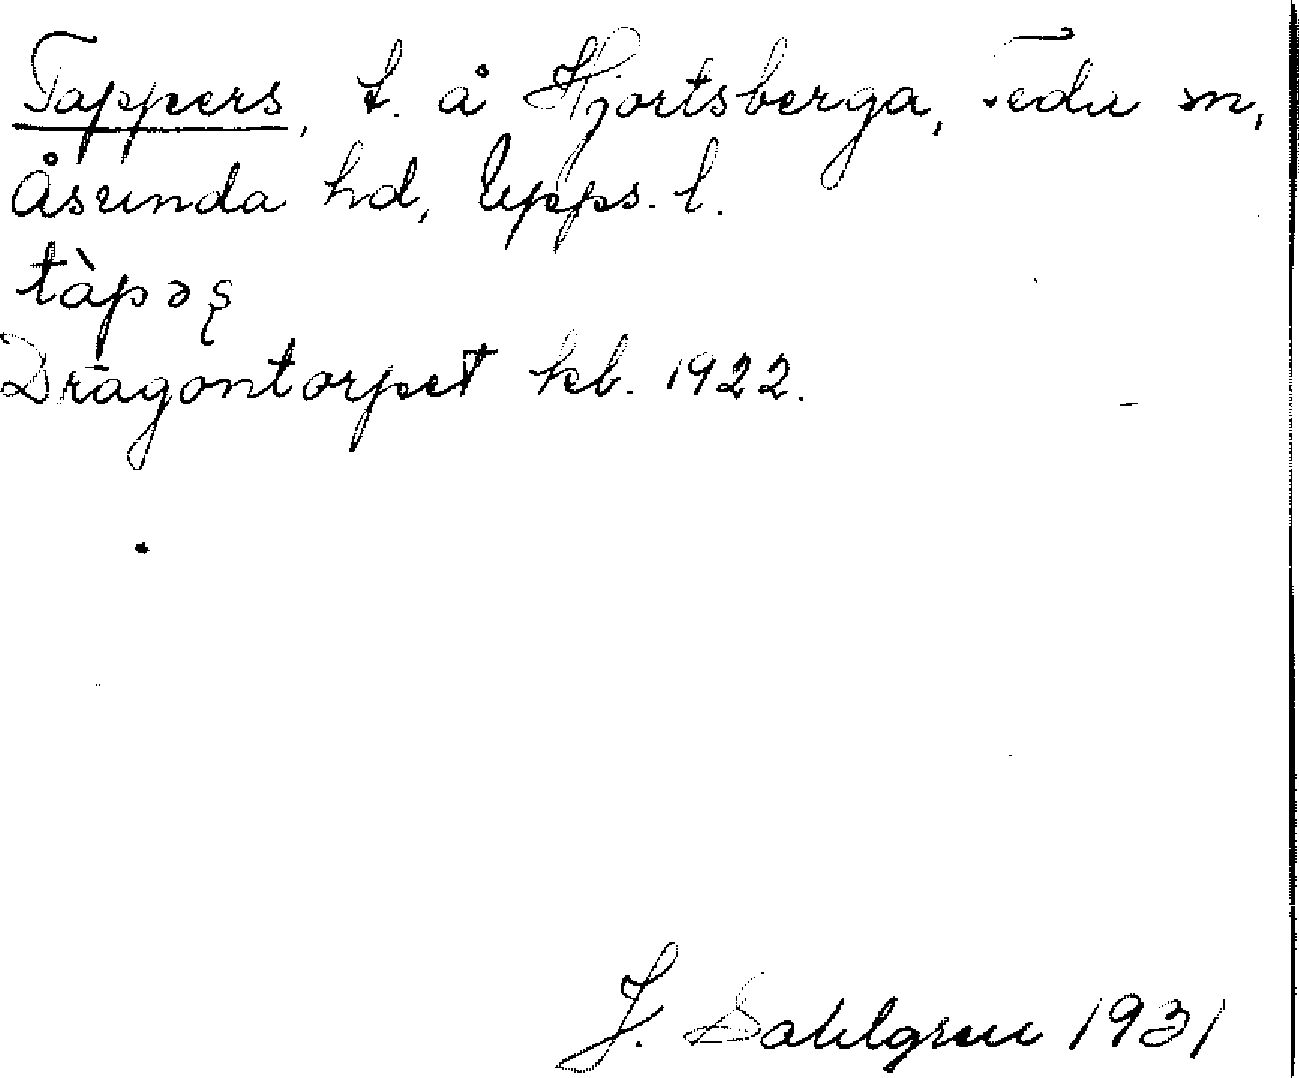 Tappers, t. å Hjortsberga, Tedu sn,
Åsunda hd, Upps. l.
tàpəʂ
Dragontorpet kb. 1922.
J. Dahlgren 1931